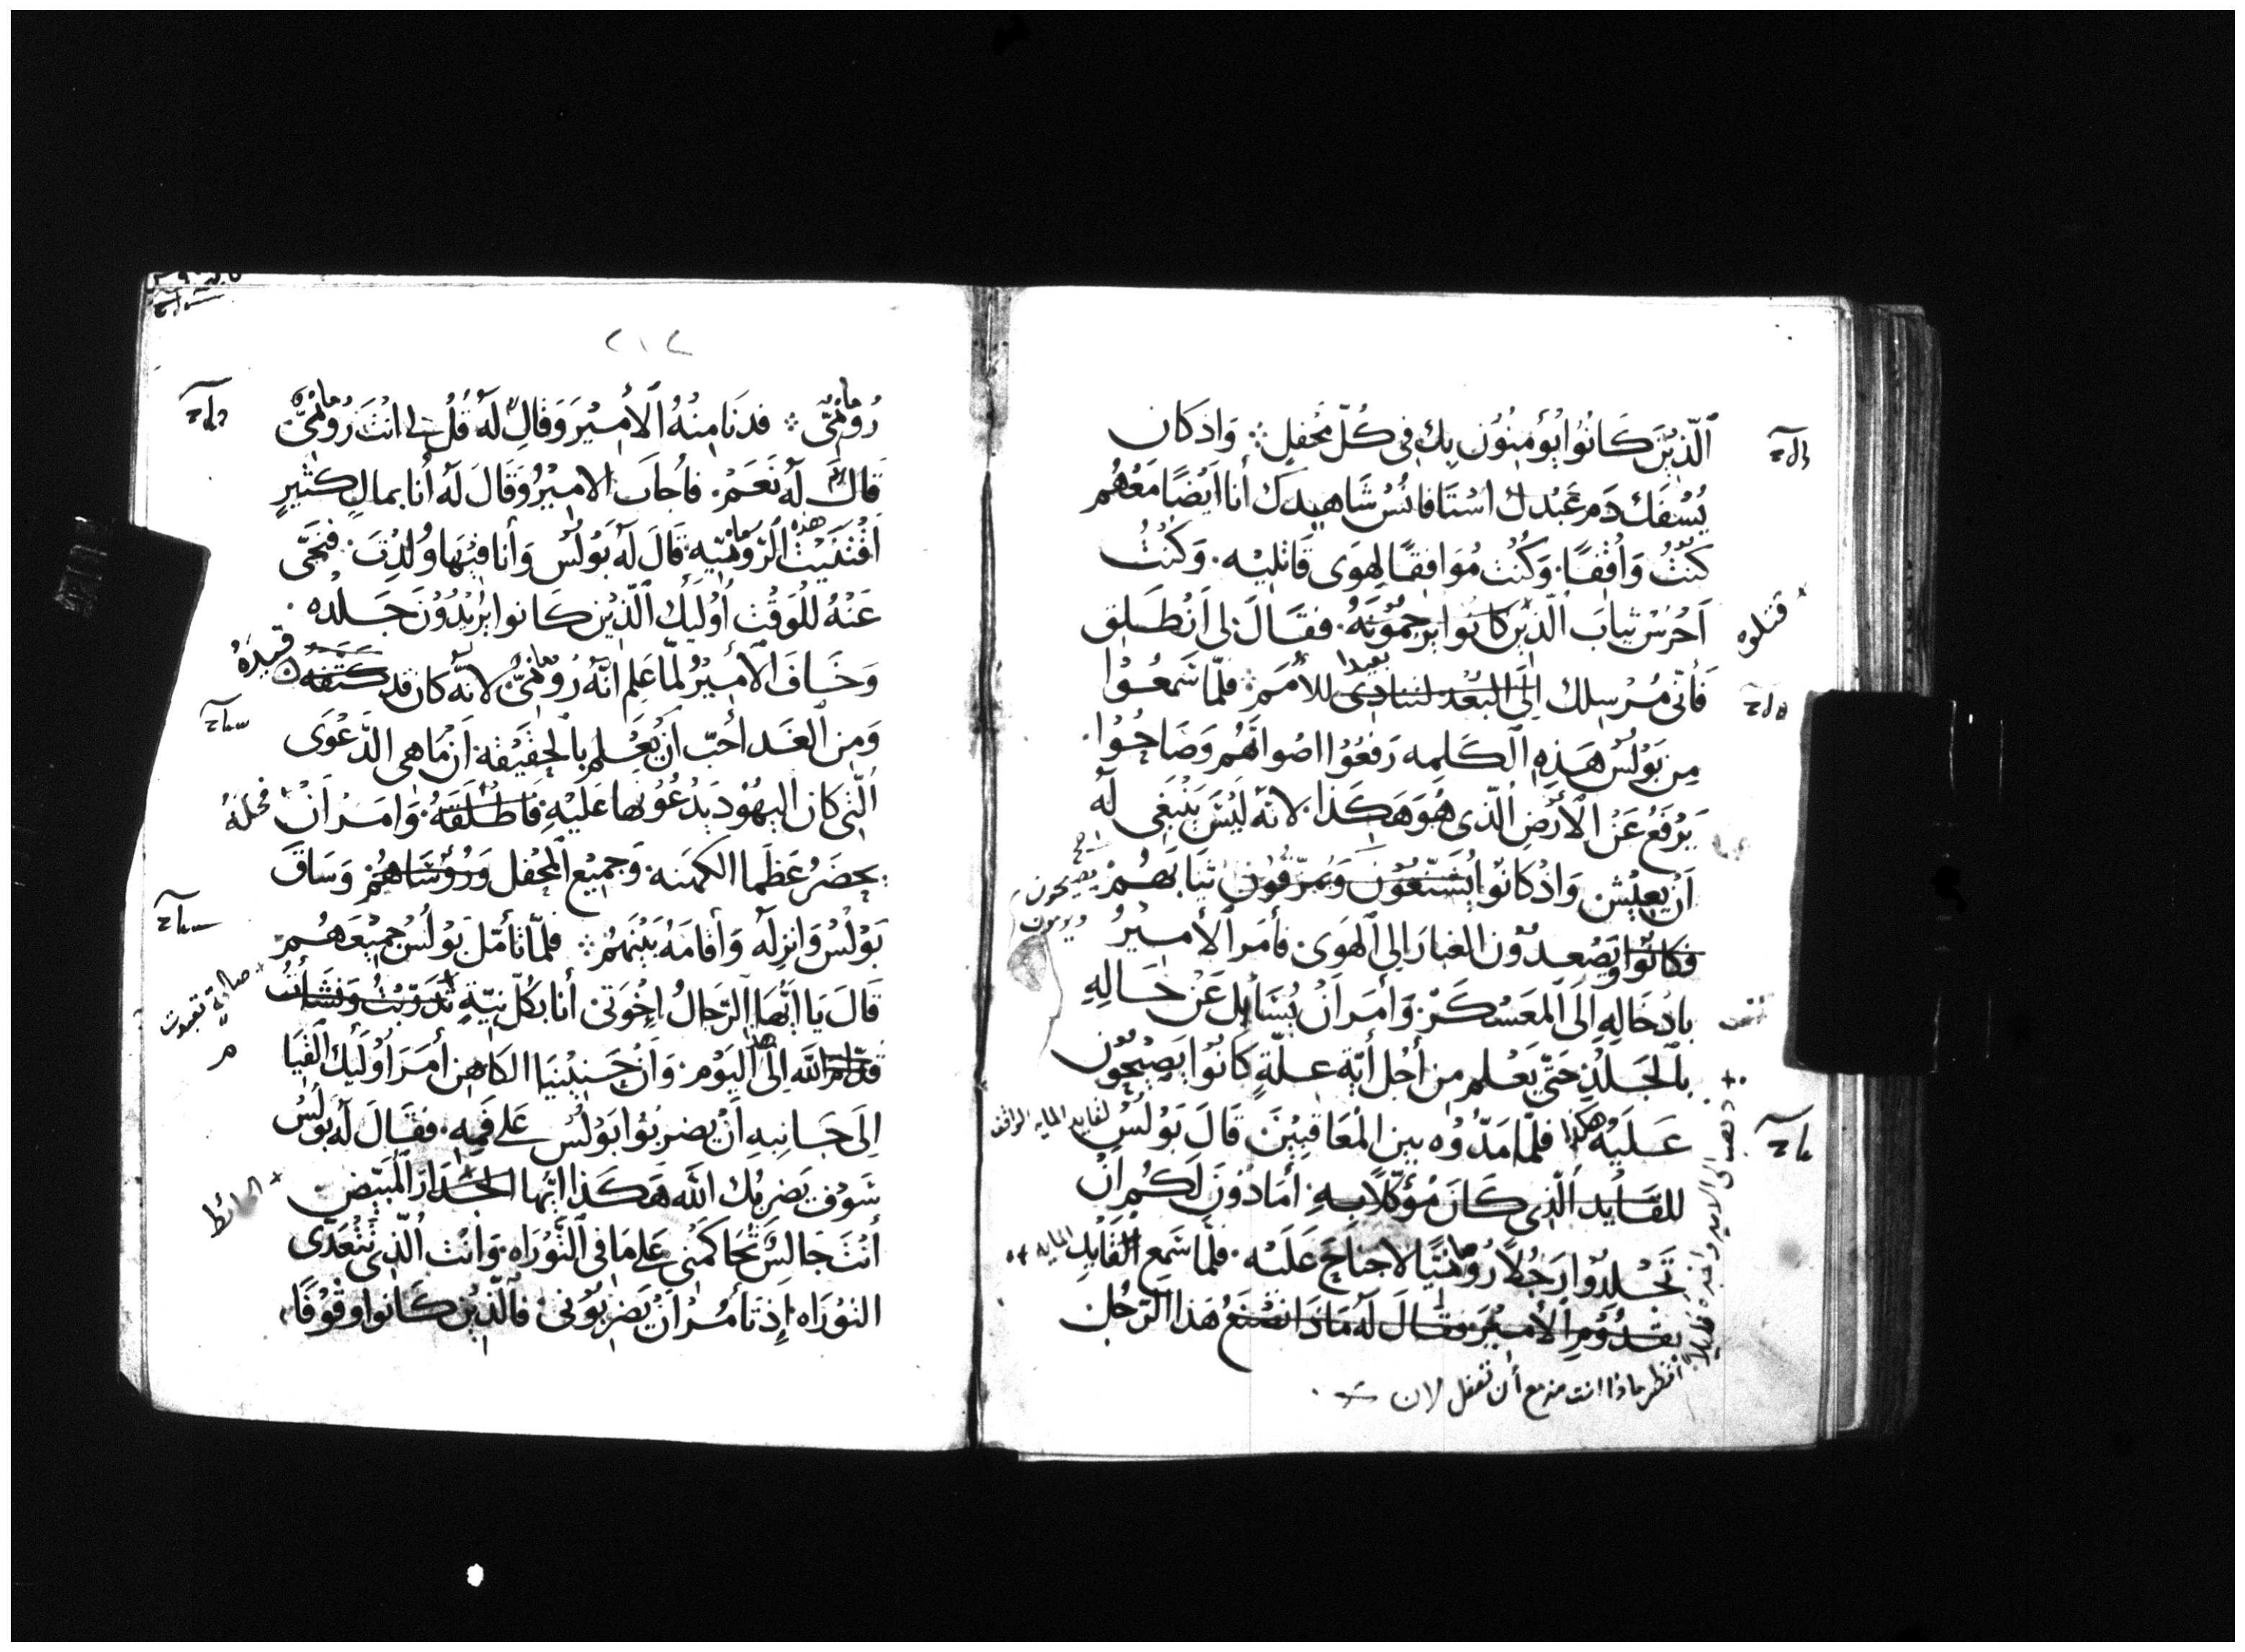 الَّذِيْنَ كَانُوْا يُؤْمِنُوْن بِكَ فِى كُلّ مَحْفلٍ ؞ وَاذ كَان
يُسْفَك دَم عَبْدك اسْتَافَانُسْ شَاهِيدك أنا اَيْضًا مَعَهُم
كنْتُ وَاقفًا. وَكُنْت مُوَافِقًا لِهوَى قَاتِليْه. وَكُنْتُ
اَحْرُسْ ثيابَ الّذيْن كانوا يرجمُوْنَهُ. فقَالَ لى اَنْطَلِق
قتلوه
فَأنّى مُرْسِلك اِلَى البُعْد لتنادى للأمَم ؞ فلمّا سَمعُوْا
بعيدا
مِن بَوْلسْ هَذِهِ الكَلِمه رَفعُوْا اصْواتَهُم وَصَاحُوْا.
يَرْفَعُ عَنْ الأرْضِ الّذى هُوَ هَكَذا. لانهّ لَيْسَ يَنْبَغِى لَه
اَنْ يعِيْش وَاذْ كانوْا يُشَنّعُوْنَ وَيُمزّقُوْنَ ثيابَهُمْ
يصيحون
ويرمون
فكانُوا يَصْعدُوْن الغبارَ الى الهَوى. فأمَر الأميْرُ
بادْخَالِهِ اِلَى المَعَسْكَرْ. وَأمرَ اَنْ يُسَأيل عَنْ حَالِهِ
بالجَلدِ حَتّى يَعْلم مِن أجْل أيّة عِلّةٍ كَانُوْا يَصْيحُوْن
عَليْه هكذا فلمّا مَدّوْه بين المعَاقِبيْنَ قَالَ بَوْلسُ
لقايد المايه الواقف
للقايد الّذى كَانَ مُؤكّلاً بِهِ. أمَاذوْنَ لَكُم انْ
تَجْلدُوا رَجُلاً رُومَانيًّا لا جناح عَلَيْه. فلمّا سَمع القَايِد
المايه
يقدُوْمِ الأميْرَ وقَالَ لَه مَاذا تصْنَعُ هَذا الرّجُل
دهب الى الامير واخبره قايلاً
انظر ماذا انت مزمع أن تفعل لان
٢١٢
رُومَانىّ ؞ فدنَا مِنْهُ الأمِيْرَ وَقالَ لَهُ قُلْ لى انْتَ رُومَانىّ
قالَ لَهُ نَعَمْ. فأجابَ الاميْرُ وَقَالَ لَهُ أنا بمالٍ كثيرٍ
افْتَدَيْتُ هذه الرّومَانيّه. قَالَ لَهُ بَوْلُسْ وَأنا فيْهَا وُلِدْتَ. فتَنَحَّى
عَنْهُ للْوَقْت اُوْليك الّذيْن كَانوا يُريْدُوْنَ جَلْده.
وَخَافَ الأميْرُ لمّا عَلِم انّهُ رُومَانىُّ لانّه كان قد كتفه
قيّدهُ
وَمِن الغَد أحبّ اَنْ يَعْلم بالحَقيْقه. اَنْ مَا هِى الدّعْوَى
الّتى كان اليهُوْد يَدْعُوْنها عَليْهِ فاطْلَقَهُ. وَامَر اَنْ
فحلّهُ
يحضَرُ عَظَما الكهنه. وَجميْع المحْفل وَرُوْسَاهُمْ وَسَاقَ
بَوْلُسْ وَانزلَهُ وَأقامَهُ بَيْنَهُمْ ؞ فلمّا تأمّل بَوْلُسُ جميْعَهُم
قَالَ يَا ايّهَا الرّجَالُ اِخْوَتىْ أنا بكُلّ نيّةٍ تدرّبْتُ ونشأتُ
صالحة تعبدت
قدّام الله اِلَى هذا اليَوْم. وَاَنْ حَنيْنِيَا الكاهِن أمَرَ اُوْليك القيَا
اِلَى جَانِبِهِ اَنْ يضربُوا بَوْلُسْ عَلى فَمِهِ. فقَالَ لَهُ بَوْلسُ
سَوْف يَضْربُك الله هَكَذا ايّها الجْدَار المبيّض
الحائط
أنْتَ جَالِسٌ تُحَاكمُنى عَلى مَا فى التّوْرَاه. وَانْت الّذى تَتْعَدّى
التوْرَاه. اِذ تَأمُرُ اَنْ يَضربُوْنى. فالّذيْن كَانوا وقُوْفًا،